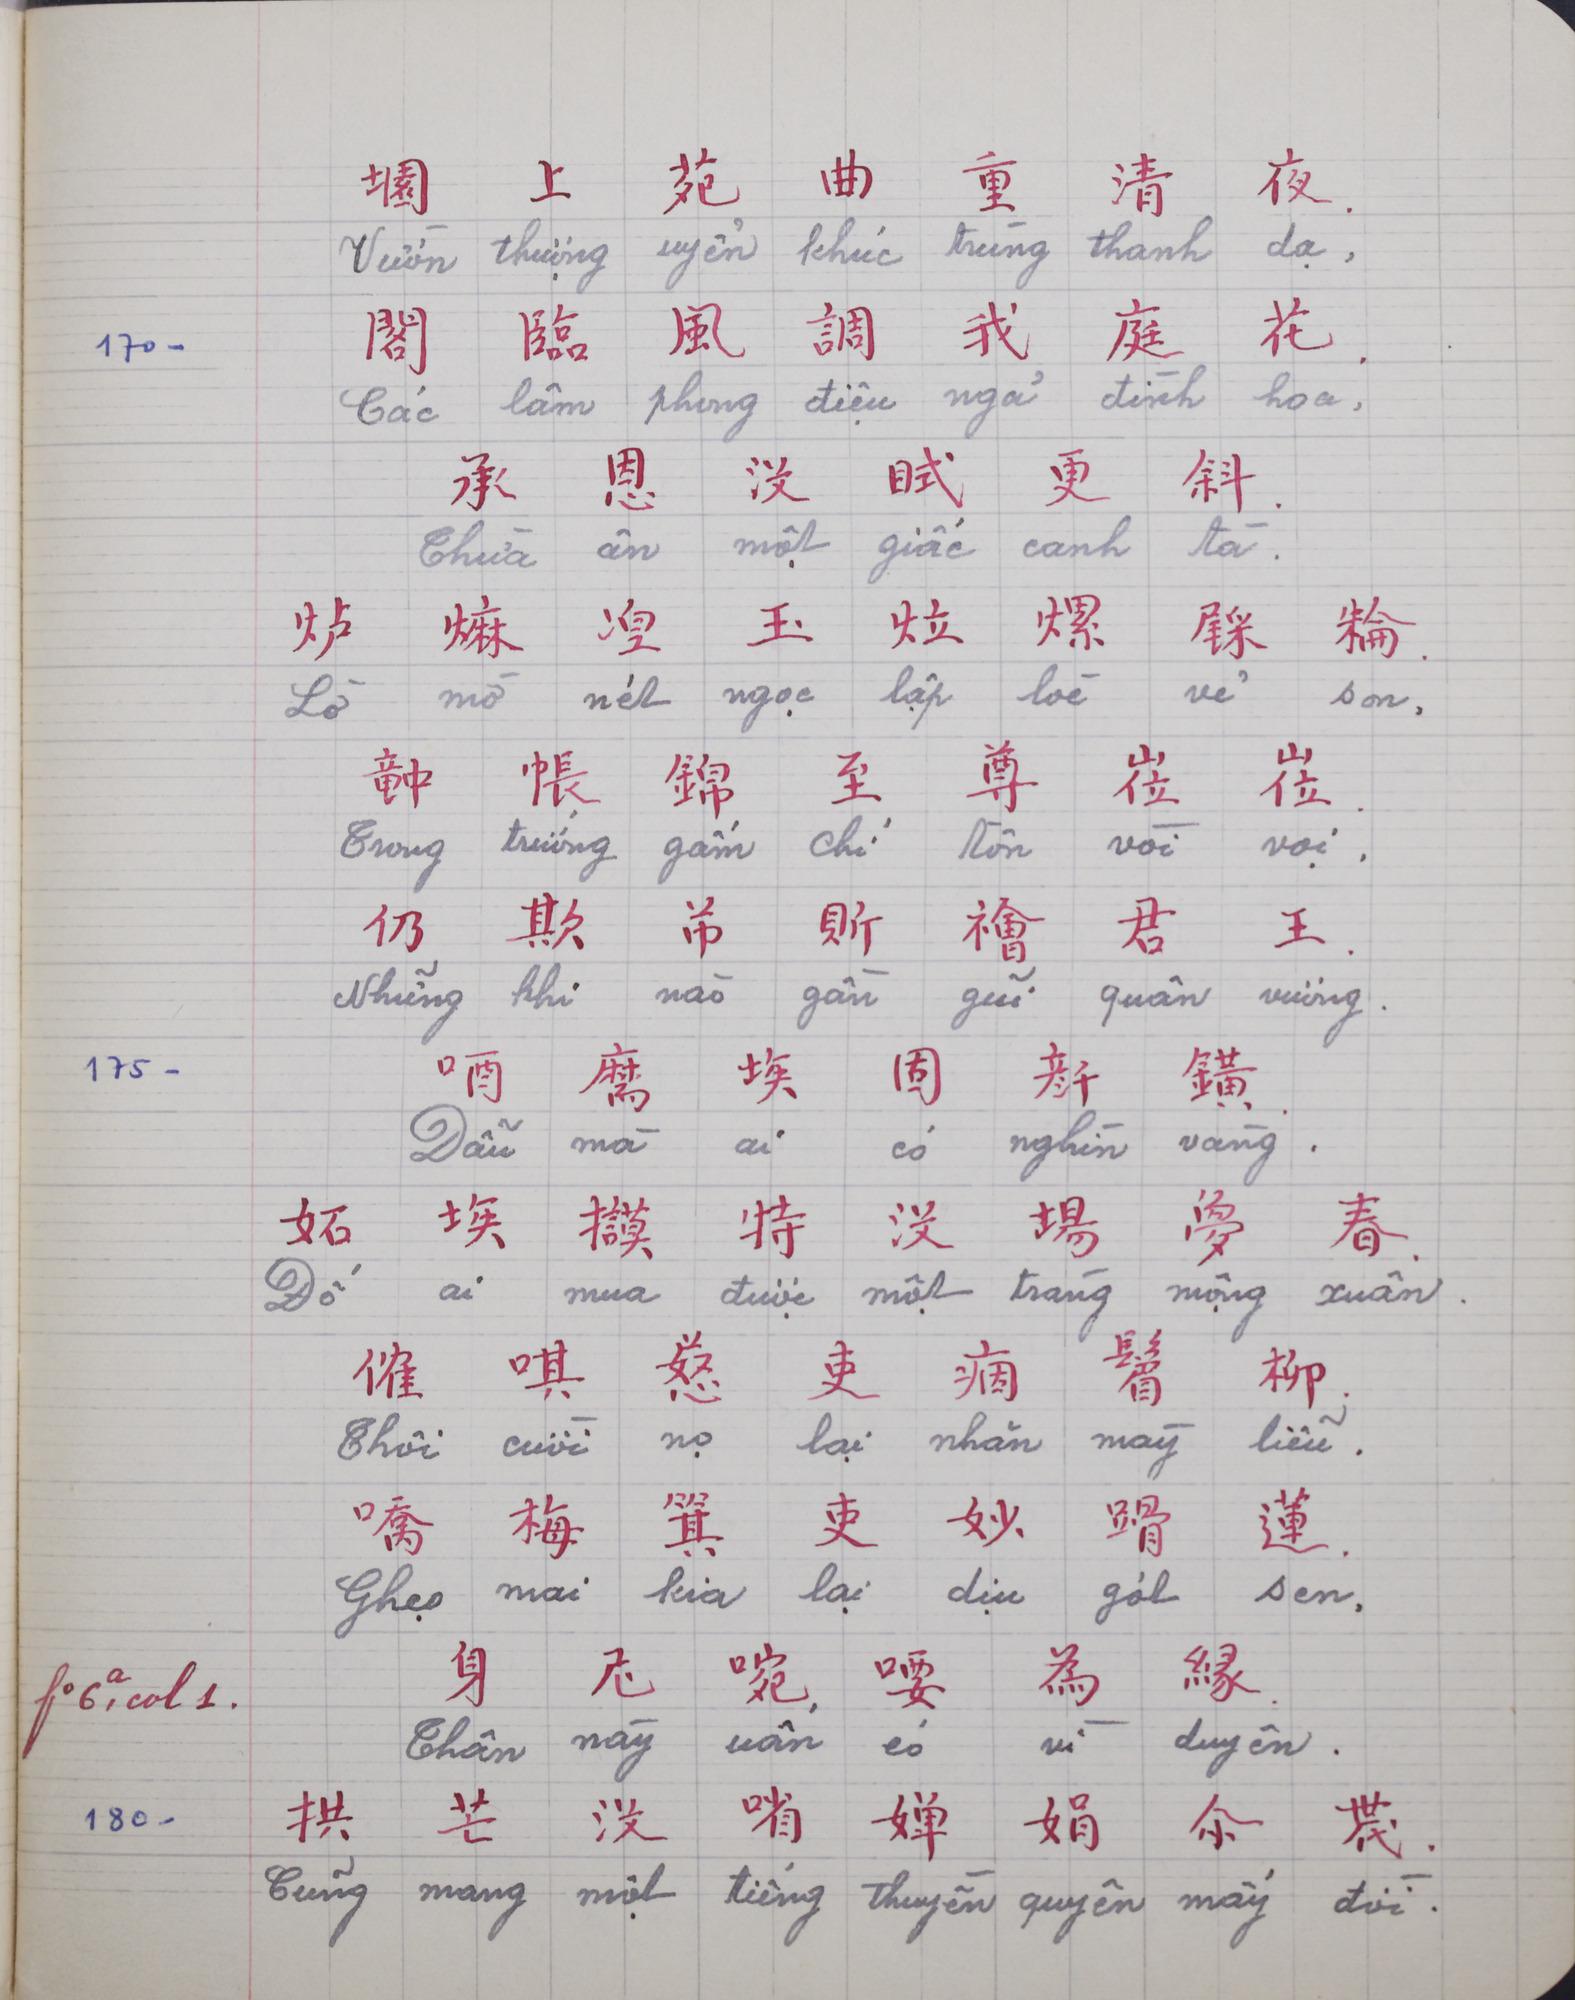 墹 上 苑 曲 重 清 夜.
Vườn thượng uyển khúc trùng thanh dạ,
170- 閣 臨 風 調 我 庭 花.
Các lâm phong điệu ngã đình hoa,
承 恩 没 更 斜.
Thừa ân một giấc canh tà.
炉 𤐤 湟 玉 㷇 𤐡 粰.
Lờ mờ nét ngọc lập loè vẻ son,
𥪝 帳 錦 至 尊 𡹡 𡹡.
Trong trướng gấm chí tôn vòi vọi,
仍 欺 𢂞 𧵆 襘 君 王.
Những khi nào gần gũi quân vương.
175- 唒 麼 埃 固 𠦳 鐄.
Dẫu mà ai có nghìn vàng.
妬 埃 特 没 場 夢 春.
Đố ai mua được một tràng mộng xuân.
傕 唭 怒 吏 痼 柳.
Thôi cười nọ lại nhăn mày liễu.
嘺 梅 箕 吏 妙 蓮.
Ghẹo mai kia lại dịu gót sen,
fº 6ª, col 1. 身 尼 啘 㗂 為 緣.
Thân này uẩn có vì duyên.
180- 拱 芒 没 㗂 嬋 娟 尒 𠁀.
Cũng mang một tiếng thuyền quyên mấy đời.